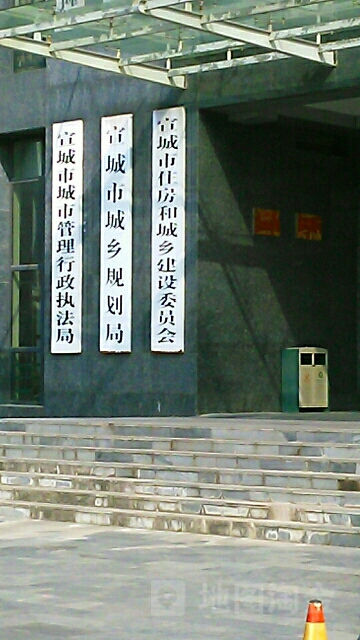 宣城市住房和城乡建设委员会
宣城市城乡规划局
宣城市城市管理行政执法局
地图淘金